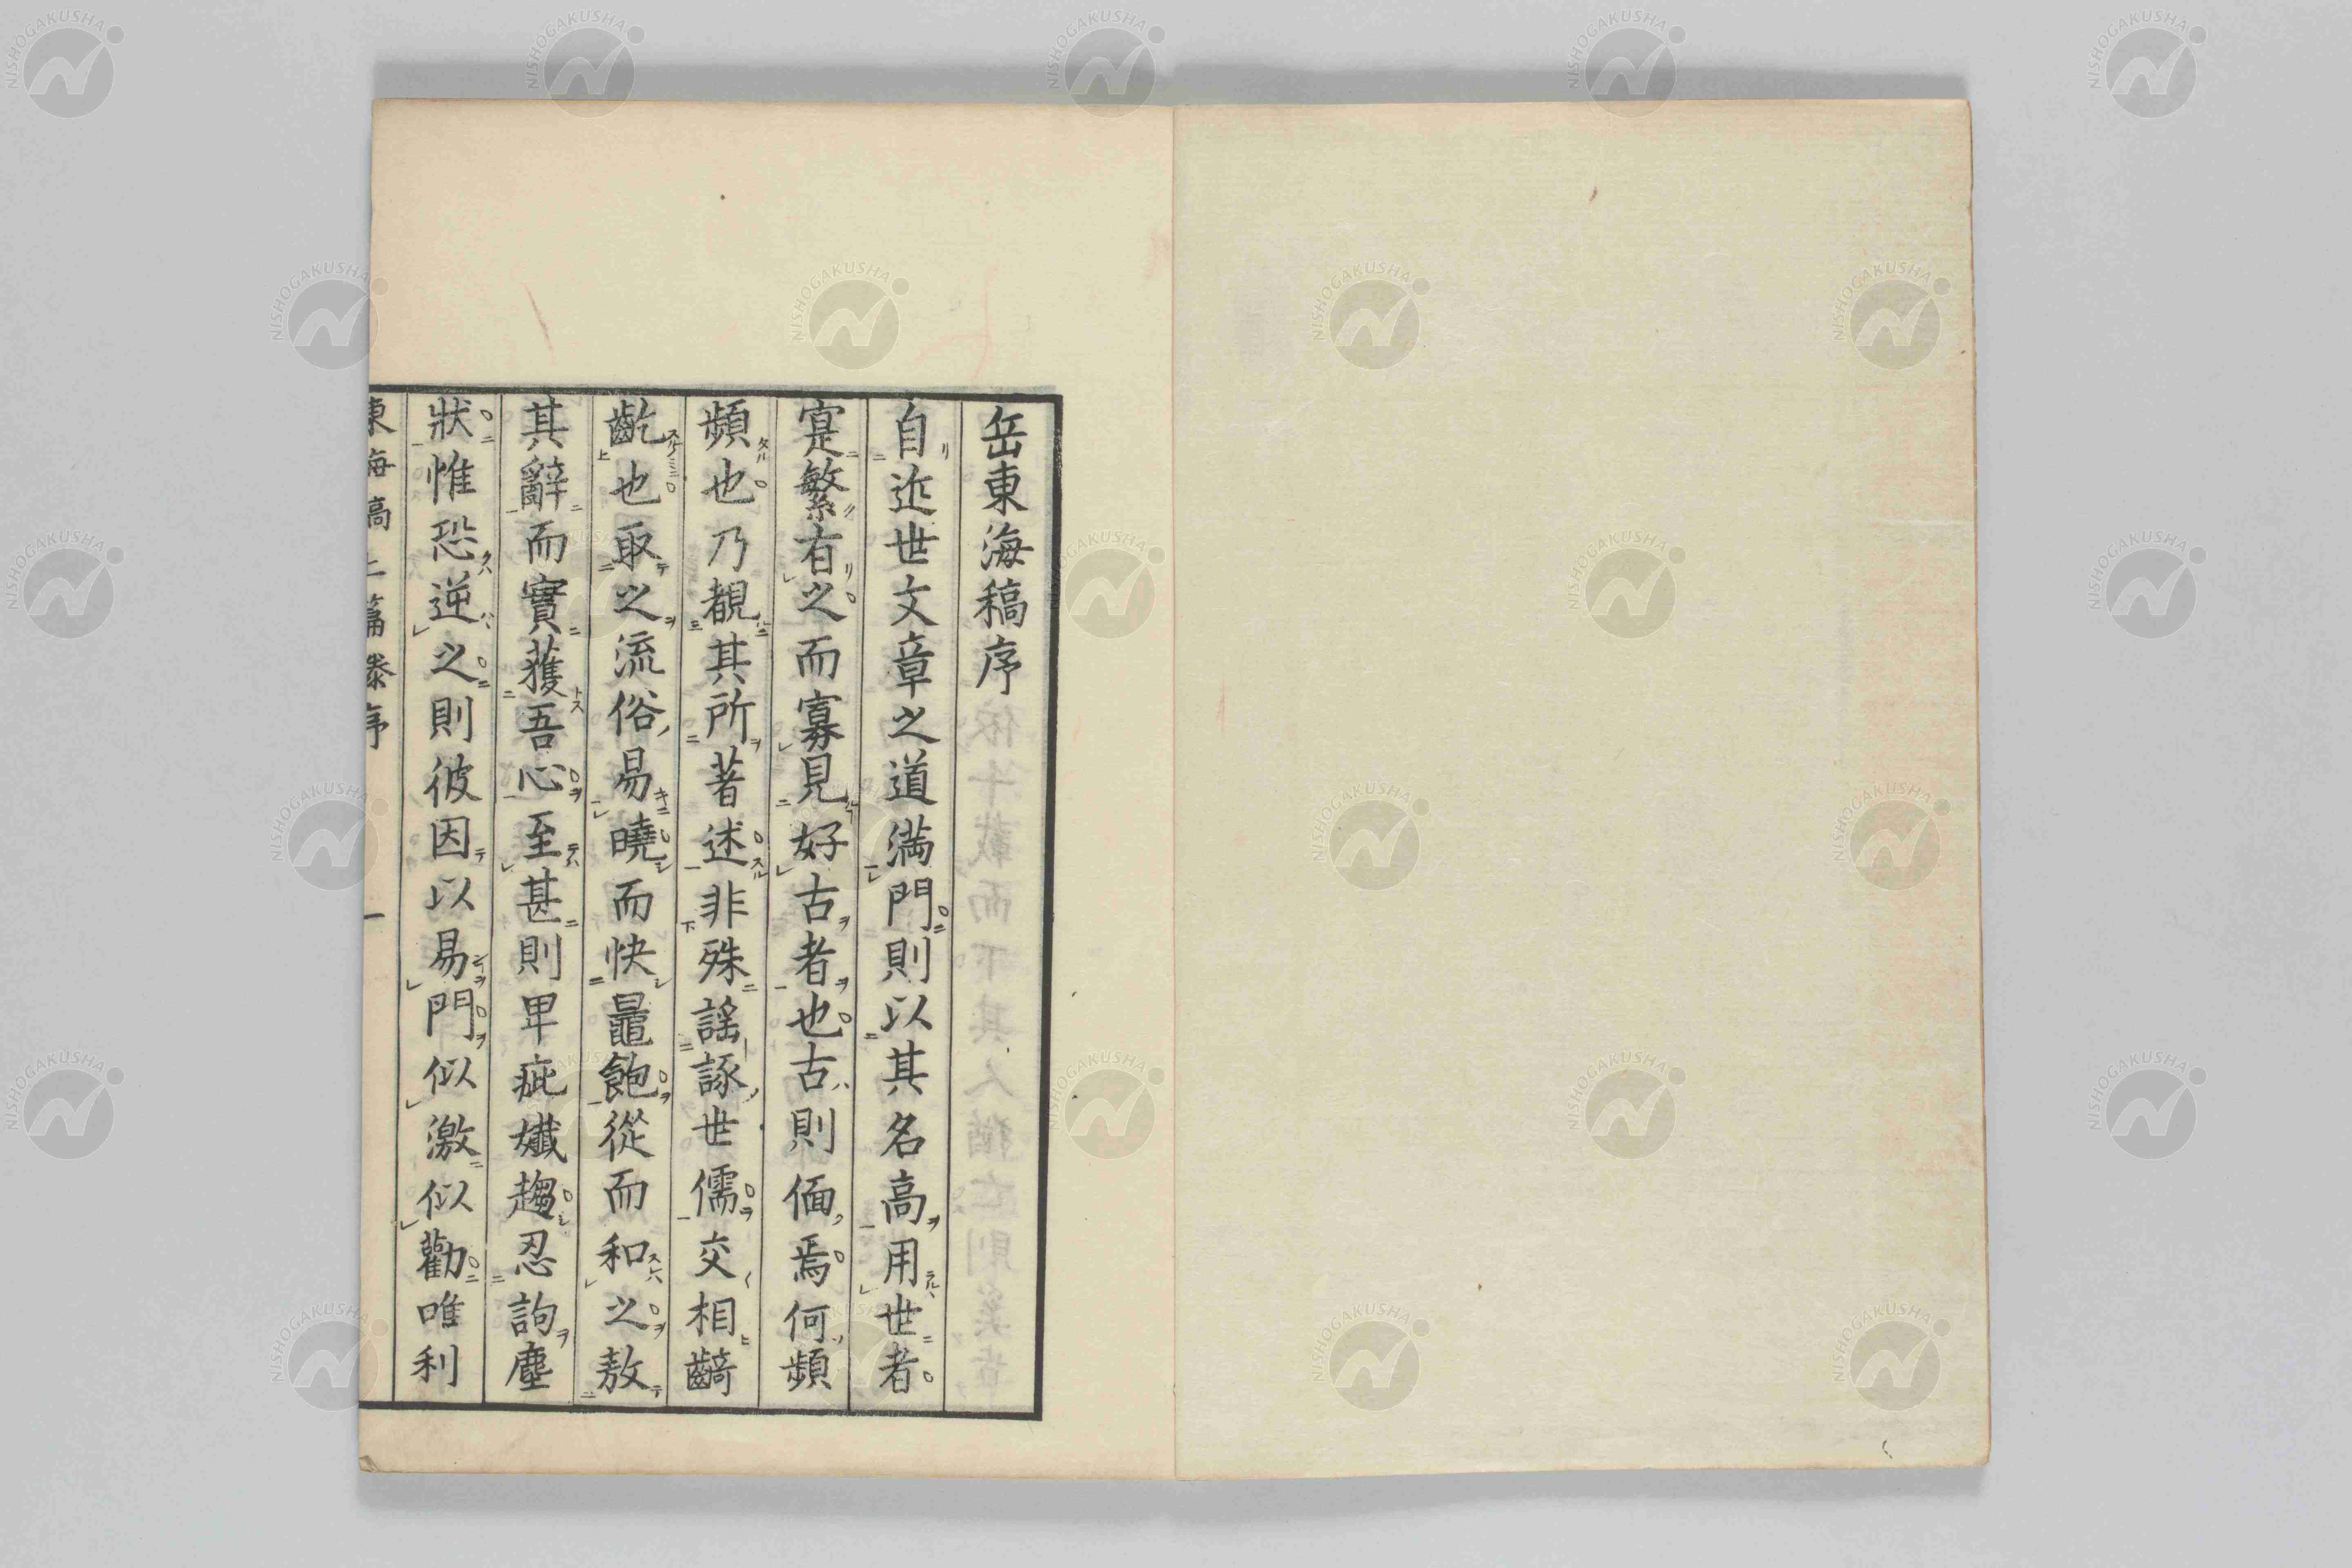 岳東海稿序
自近世文章之道満門則以其名高用世者
寔繁有之而寡見好古者也古則偭焉何頻
頻也乃覩其所著述非殊謡諑世儒交相齮
齕也取之流俗易曉而快鼂飽從而和之敖
其辭而實獲吾心至甚則卑疵孅趨忍訽塵
狀惟恐逆之則彼因以易門似激似勸唯利
東海稿二篇 序 一
NISHOGAKUSHA